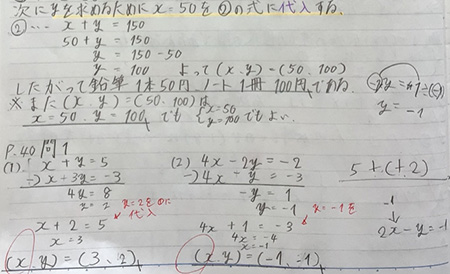 次にyを求めるためにx=50を②の式に代入する。
②… x + y = 150
50 + y = 150
y = 150 - 50
y = 100 よって (x.y) = (50.100)
したがって鉛筆1本50円、ノート1冊100円である。
※また(x.y)=(50.100)は
x=50.y=100、でも { x=50 y=100 でもよい。
y = -1
P.40 問1
(1) x + y = 5
-) x - 3y = -3
4y = 8
y = 2
x + 2 = 5
x = 3
(x.y) = (3.2)
x=2を①に
代入
(2) 4x - 2y = -2
-) 4x - y = -3
-y = 1
y = -1
4x + 1 = -3
4x = -4
x = -1
(x.y) = (-1.-1)
x = -1を
5 + (+2)
-1
↓
2x - y = -1